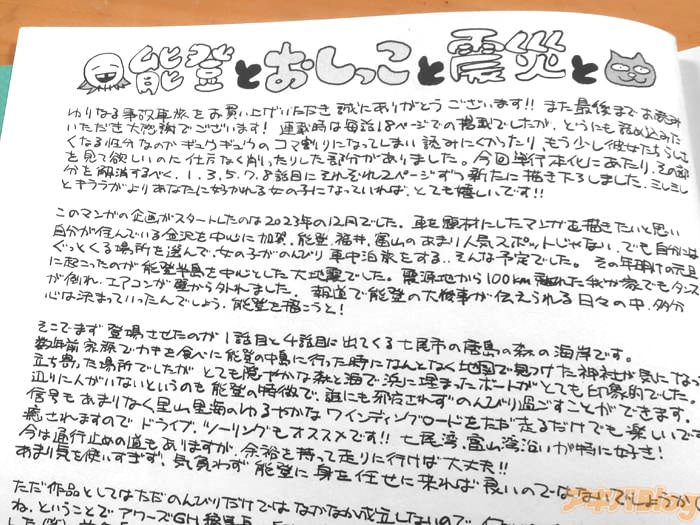 能登とおしっこと震災と
ゆりなる事故車旅をお買い上げいただき誠にありがとうございます!! また最後までお読み
いただき大感謝でございます! 連載時は毎話18ページでの掲載でしたが、どうにも詰め込みたく
なる性分なのかギュウギュウのコマ割りになってしまい読みにくかったり、もう少し彼女たちらしさ
を見て欲しいのに仕方なく削ったりした部分がありました。今回単行本化にあたり、その部
分を解消するべく、1、3、5、7、8話目にそれぞれ2ページずつ新たに描き下ろしました。ミレミレ
とキララがよりあなたに好かれる女の子になっていれば、とても嬉しいです!!
このマンガの企画がスタートしたのは2023年の12月でした。車を題材にしたマンガを描きたいと思い
自分が住んでいる金沢を中心に加賀、能登、福井、富山のあまり人気スポットじゃない、でも自分には
ぐっとくる場所を選んで、女の子がのんびり車中泊旅をする…そんな予定でした。その年明けの元旦
に起こったのが能登半島を中心とした大地震でした。震源地から100km離れた我が家でもタンス
が倒れ、エアコンが壁から外れました。報道で能登の大惨事が伝えられる日々の中、多分
心は決まっていったんでしょう、能登を描こうと!
そこでまず登場させたのが1話目と4話目に出てくる七尾市の唐島の森の海岸です。
数年前家族でカキを食べに能登の中島に行った時になんとなく地図で見つけた神社が気になって
立ち寄った場所でしたが、とても穏やかな森と海で、浜に埋まったボートがとても印象的でした。
辺りに人がいないというのも能登の特徴で、誰にも邪魔されずのんびり過ごすことができます。
信号もあまりなく里山里海のゆるやかなワインディングロードをただ走るだけでも楽しいです
癒されますのでドライブ、ツーリングもオススメです!! 七尾湾、富山湾沿いが特に好き!
今は通行止めの道もありますが、余裕を持って走りに行けば大丈夫!!
あまり気を使いすぎず、気負わず能登に身を任せに来れば良いのではないでしょうか
ただ作品としてはただのんびりだけではなかなか成立しないので、
ね、ということでアワーズGH